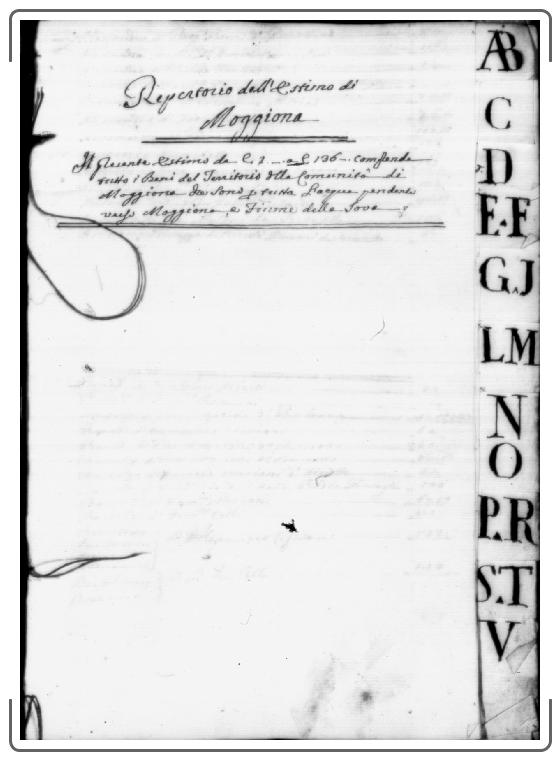 Repertorio dell'Estimo di
Moggiona
Il presente Estimo da C. 1 a C 196 comprende
tutto i Beni del Territorio della Comunità di
Moggiona che sono p tutta l'acqua pendente
verso Moggiona, e Fiume della Sova
AB
C
D
E.F
G.J
LM
N
O
P.R
S.T
V